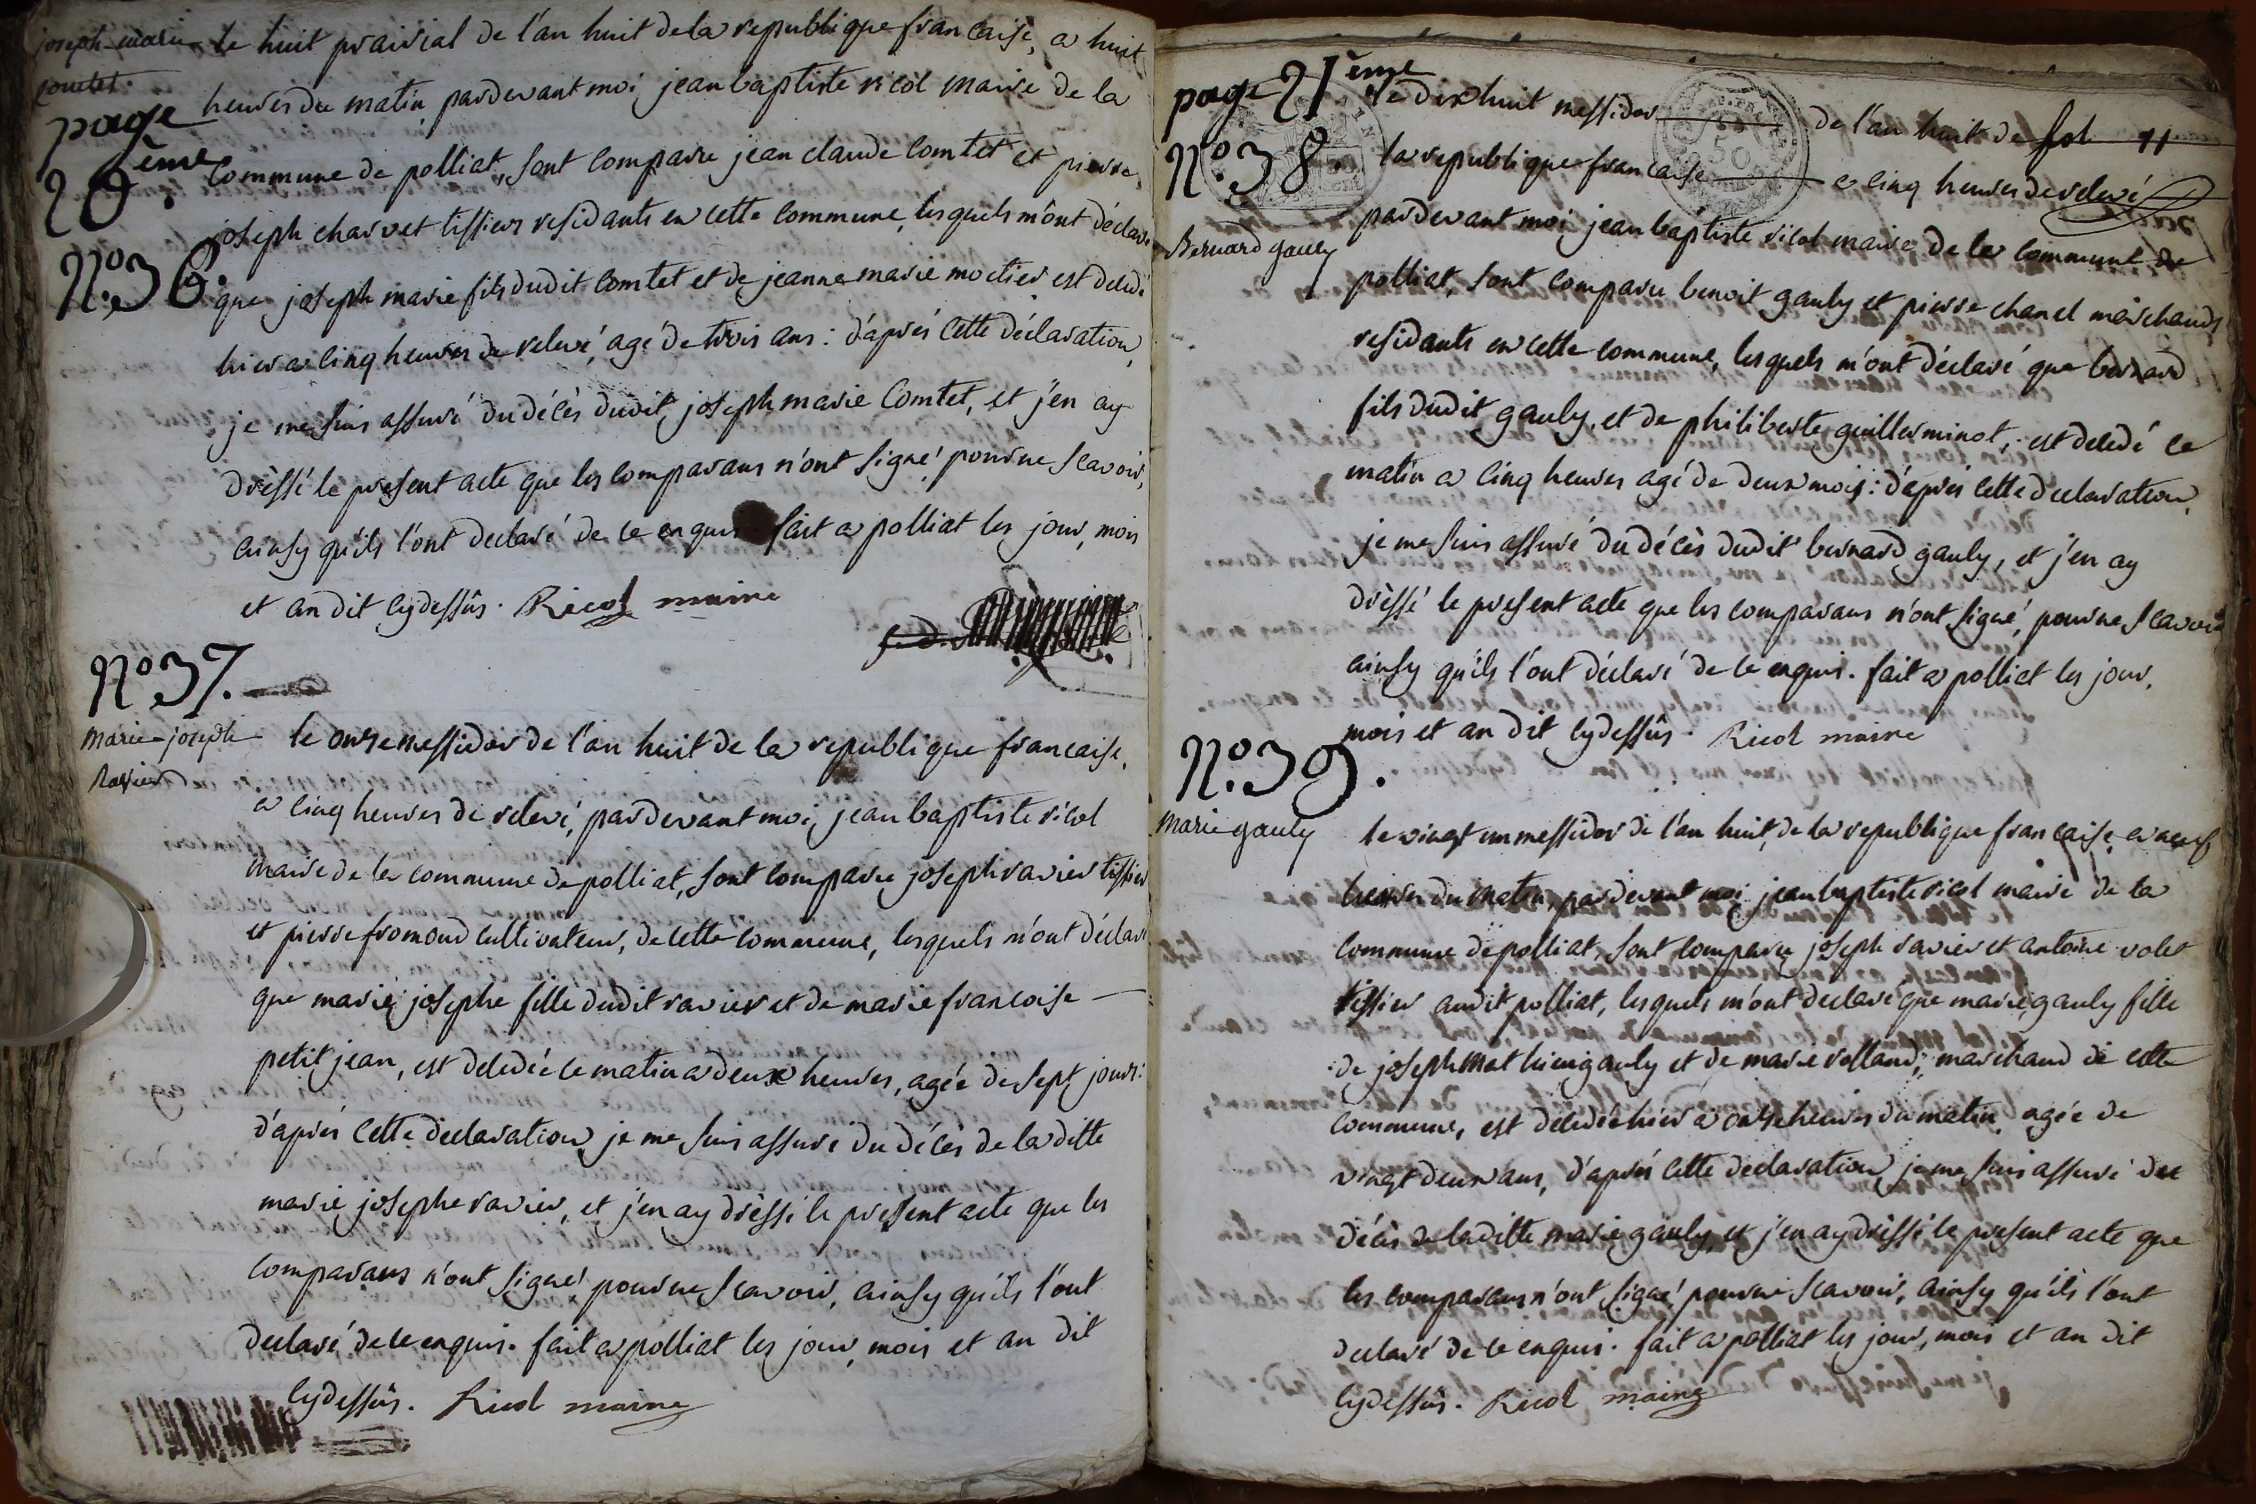 joseph marie
comtet
page
20ème
N°.36.
le huit prairial de l'an huit de la republique francaise, a huit
heures du matin, pardevant moi jean baptiste ricol maire de la
commune de polliat, sont comparu jean claude comtet et pierre
joseph charvet tissiers residants en cette commune, lesquels m'ont déclaré
que joseph marie fils dudit comtet et de jeanne marie moctier est décdé
hier a cinq heures de relevé, agé de trois ans : d'aprés cette déclaration,
je me suis assuré du décès dudit joseph marie comtet, et j'en ay
dressé le present acte que les comparans n'ont signé pour ne scavoir,
ainsy qu'ils l'ont declaré de ce enquis fait a polliat les jour, mois
et an dit cydessûs. Ricol maire
N°37.
marie josephe
Ravier
le onze messidor de l'an huit de la republique francaise,
a cinq heures de relevé, pardevant moi, jean baptiste ricol
maire de la commune de polliat, sont comparu joseph ravier tissier
et pierre fromond cultivateur, de cette commune, lesquels m'ont déclaré
que marie josephe fille dudit ravier et de marie francoise
petit jean, est decedée ce matin a deux heures, agée de sept jours :
d'aprés cette declaration je me suis assuré du décès de la ditte
marie josephe ravier, et j'en ay dressé le present acte que les
comparans n'ont signé pour ne scavoir, ainsy qu'ils l'ont
declaré de ce enquis. fait a polliat les jour, mois et an dit
cydessûs. Ricol maire
page 21ème
N°.38.
Bernard gauly
fol 11
le dix huit messidor de l'an huit de
la republique francaise a cinq heures de relevé
pardevant moi, jean baptiste ricol maire de la commune de
polliat, sont comparu benoit gauly et pierre chanel marchands
residants en cette commune, lesquels m'ont déclaré que bernard
fils dudit gauly, et de philiberte guillerminot, est decedé ce
matin a cinq heures agé de deux mois : d'aprés cette declaration,
je me suis assuré du décès dudit bernard gauly, et j'en ay
dressé le present acte que les comparans n'ont signé, pour ne scavoir
ainsy qu'ils l'ont déclaré de ce enquis. fait a polliat les jour,
mois et an dit cydessûs. Ricol maire
N°.39.
marie gauly
le vingt un messidor de l'an huit, de la republique francaise, a neuf
heures du matin, pardevant moi jean baptiste ricol maire de la
commune de polliat, sont comparu joseph ravier et antoine volet
tissier audit polliat, lesquels m'ont declaré que marie gauly fille
de joseph mathieu gauly et de marie rolland, marchand de cette
commune, est decedée hier a onze heures du matin, agée de
vingt deux ans, d'aprés cette declaration je me suis assuré du
décès de laditte marie gauly, et j'en ay dressé le present acte que
les comparans n'ont signé, pour ne scavoir, ainsy qu'ils l'ont
declaré de ce enquis. fait a polliat les jour, mois et an dit
cydessûs. Ricol maire